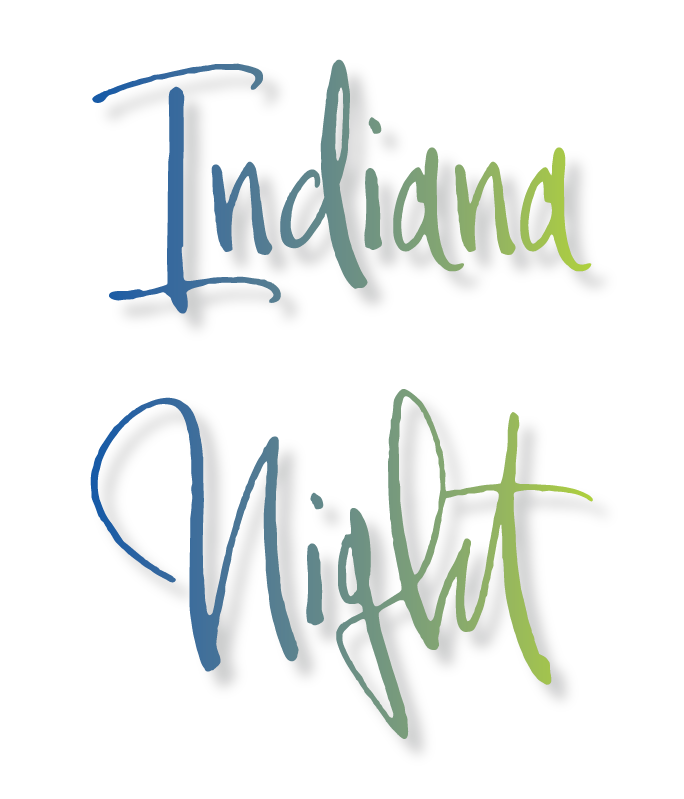 Indiana
Night